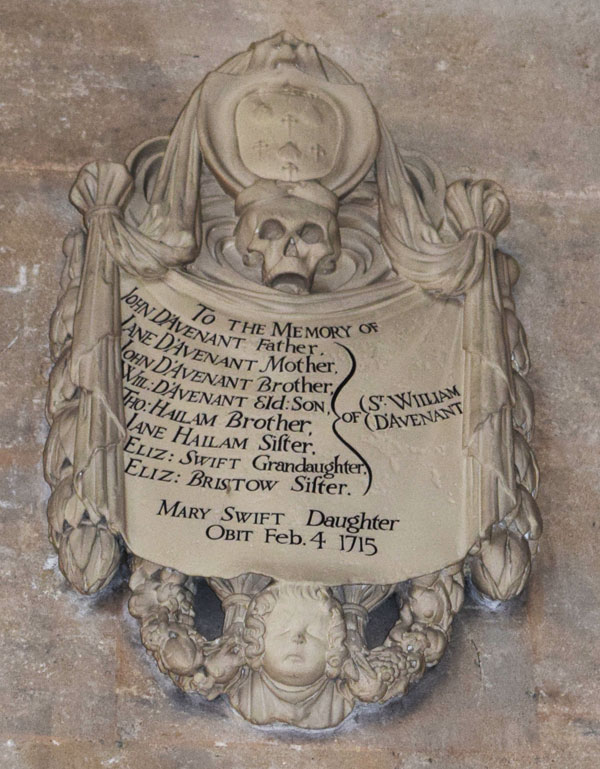 TO THE MEMORY OF
JOHN D'AVENANT Father.
JANE D'AVENANT Mother,
JOHN D'AVENANT Brother,
WILL: D'AVENANT Eld: SON,
THO: HAILAM Brother,
JANE HAILAM Siſter.
ELIZ: SWIFT Grandaughter,
ELIZ: BRISTOW Siſter.
OF
Sr. WILLIAM
D'AVENANT
MARY SWIFT Daughter
OBIT Feb. 4 1715